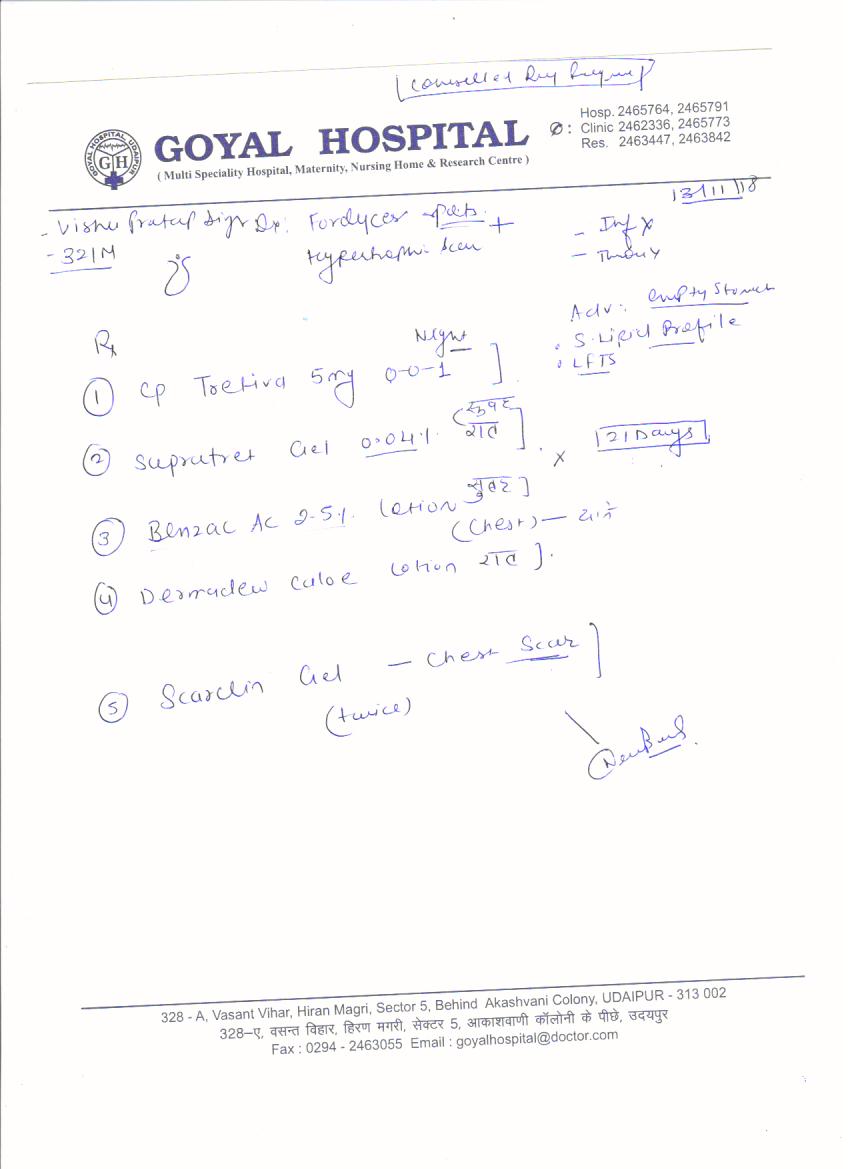 Counselled
Hosp. 2465764, 2465791
Clinic 2462336, 2465773
Res. 2463447, 2463842
GOYAL HOSPITAL UDAIPUR
GH
GOYAL HOSPITAL
( Multi Speciality Hospital, Maternity, Nursing Home & Research Centre )
13/11/18
- Vishnu Pratap Singh Dx: Fordyces spots +
- 32/M
Hypertrophic Scar
- Inf X
Adv: empty Stomach
. S. Lipid Profile
. LFTS
Rx
Night
① Cp Tretiva 5mg 0-0-1 ]
② Supratret Gel 0.04% रात ]
x 21 Days
③ Benzac AC 2.5% lotion सुबह ]
(Chest)
④ Dermadew Caloe Lotion रात ].
⑤ Scarclin Gel — Chest Scar ]
(twice)
328 - A, Vasant Vihar, Hiran Magri, Sector 5, Behind Akashvani Colony, UDAIPUR - 313 002
328–ए, वसन्त विहार, हिरण मगरी, सेक्टर 5, आकाशवाणी कॉलोनी के पीछे, उदयपुर
Fax : 0294 - 2463055 Email : goyalhospital@doctor.com